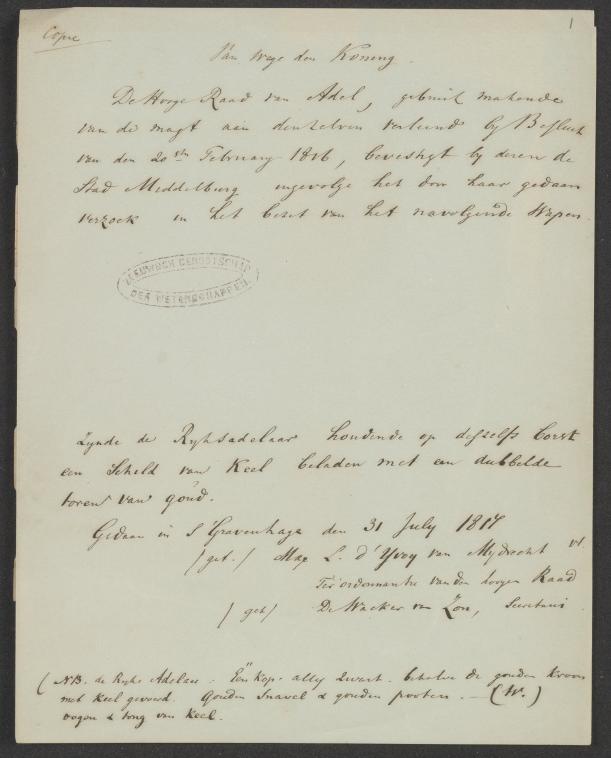 Copie
1
Van wege den Koning.
De Hooge Raad van Adel, gebruik makende
van de magt aan denzelven verleend by Besluit
van den 20sten February 1816, bevestigt by dezen de
Stad Middelburg ingevolge het door haar gedaan
verzoek in het bezit van het navolgende Wapen.
ZEEUWSCH GENOOTSCHAP
DER WETENSCHAPPEN
Zynde de Ryksadelaar houdende op deszelfs borst
een Schild van Keel beladen met een dubbelde
toren van goud.
Gedaan in 's Gravenhage den 31 July 1817
/get./ Max L. d'Yvoy van Mydrecht vt.
Ter ordonnantie van den hoogen Raad
/get/ De Wacker van Zon, Secretaris
(NB. de Ryks Adelaar. Een kop. alles zwart. behalve de gouden kroon
met keel gevoerd. Gouden snavel & gouden pooten. — (W.)
oogen & tong van Keel.